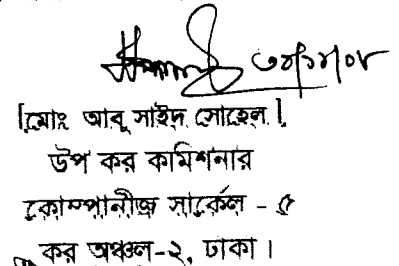 [মোঃ আবু সাইদ সোহেল]
উপ কর কমিশনার
কোম্পানীজ সার্কেল - ৫
কর অঞ্চল-২, ঢাকা।